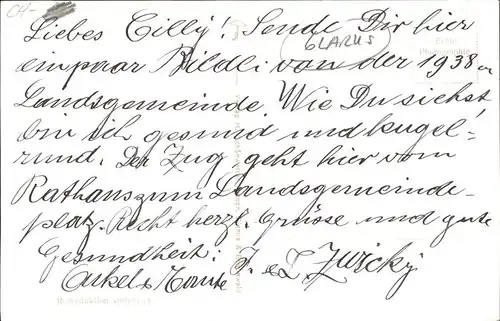 CH-
Liebes Cilly! Sende Dir hier
GLARUS
Echte
Photographie
ein paar Bildli von der 1938er
Landsgemeinde. Wie Du siehst,
bin ich gesund und kugel=
rund. Der Zug geht hier vom
Rathaus zum Landsgemeinde-
platz. Recht herzl. Grüsse und gute
Gesundheit:
J. & L. Zwicky